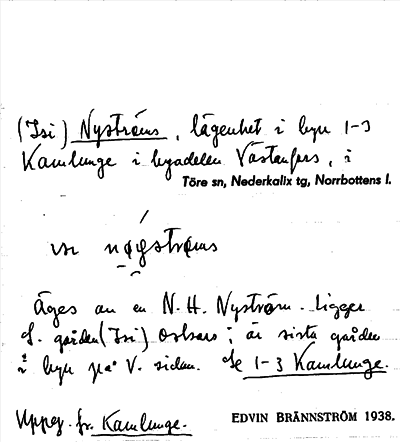 (Isi) Nyströms, lägenhet i byn 1-3
Kamlunge i byadelen Västanfors, i
Töre sn, Nederkalix tg, Norrbottens l.
äges av en N. H. Nyström. Ligger
gården (Isi) i är sista gården
i byn på V. sidan. Se 1-3 Kamlunge.
Uppg. fr. Kamlunge.
EDVIN BRÄNNSTRÖM 1938.